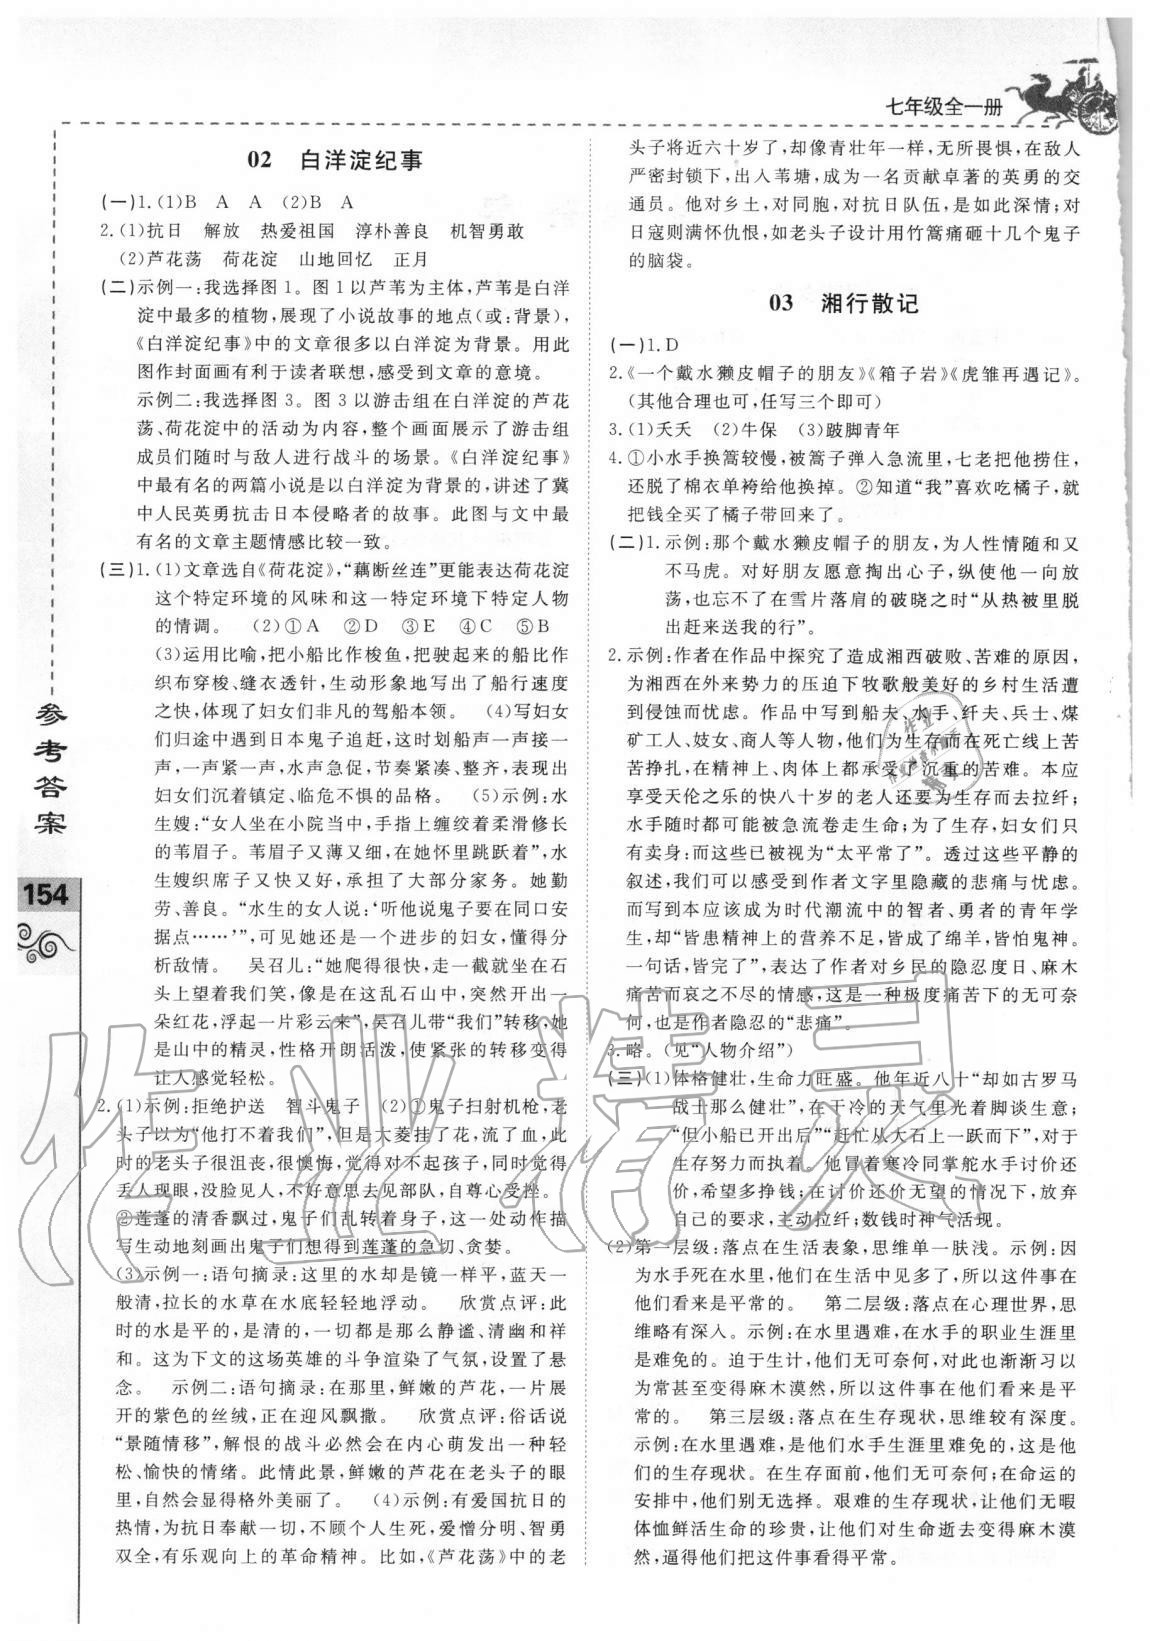 七年级全一册
02 白洋淀纪事
(一)1.(1)B A A (2)B A
2.(1)抗日 解放 热爱祖国 淳朴善良 机智勇敢
(2)芦花荡 荷花淀 山地回忆 正月
(二)示例一:我选择图1。图1以芦苇为主体,芦苇是白洋
淀中最多的植物,展现了小说故事的地点(或:背景),
《白洋淀纪事》中的文章很多以白洋淀为背景。用此
图作封面画有利于读者联想,感受到文章的意境。
示例二:我选择图3。图3以游击组在白洋淀的芦花
荡、荷花淀中的活动为内容,整个画面展示了游击组
成员们随时与敌人进行战斗的场景。《白洋淀纪事》
中最有名的两篇小说是以白洋淀为背景的,讲述了冀
中人民英勇抗击日本侵略者的故事。此图与文中最
有名的文章主题情感比较一致。
(三)1.(1)文章选自《荷花淀》,“藕断丝连”更能表达荷花淀
这个特定环境的风味和这一特定环境下特定人物
的情调。 (2)①A ②D ③E ④C ⑤B
(3)运用比喻,把小船比作梭鱼,把驶起来的船比作
织布穿梭、缝衣透针,生动形象地写出了船行速度
之快,体现了妇女们非凡的驾船本领。 (4)写妇女
们归途中遇到日本鬼子追赶,这时划船声一声接一
声,一声紧一声,水声急促,节奏紧凑、整齐,表现出
妇女们沉着镇定、临危不惧的品格。 (5)示例:水
生嫂:“女人坐在小院当中,手指上缠绞着柔滑修长
的苇眉子。苇眉子又薄又细,在她怀里跳跃着”,水
生嫂织席子又快又好,承担了大部分家务。她勤
劳、善良。“水生的女人说:‘听他说鬼子要在同口安
据点……’”,可见她还是一个进步的妇女,懂得分
析敌情。 吴召儿:“她爬得很快,走一截就坐在石
头上望着我们笑,像是在这乱石山中,突然开出一
朵红花,浮起一片彩云来”,吴召儿带“我们”转移,她
是山中的精灵,性格开朗活泼,使紧张的转移变得
让人感觉轻松。
2.(1)示例:拒绝护送 智斗鬼子 (2)①鬼子扫射机枪,老
头子以为“他打不着我们”,但是大菱挂了花,流了血,此
时的老头子很沮丧,很懊悔,觉得对不起孩子,同时觉得
丢人现眼,没脸见人,不好意思见部队,自尊心受挫。
②莲蓬的清香飘过,鬼子们乱转着身子,这一处动作描
写生动地刻画出鬼子们想得到莲蓬的急切、贪婪。
(3)示例一:语句摘录:这里的水却是镜一样平,蓝天一
般清,拉长的水草在水底轻轻地浮动。 欣赏点评:此
时的水是平的,是清的,一切都是那么静谧、清幽和祥
和。这为下文的这场英雄的斗争渲染了气氛,设置了悬
念。 示例二:语句摘录:在那里,鲜嫩的芦花,一片展
开的紫色的丝绒,正在迎风飘撒。 欣赏点评:俗话说
“景随情移”,解恨的战斗必然会在内心萌发出一种轻
松、愉快的情绪。此情此景,鲜嫩的芦花在老头子的眼
里,自然会显得格外美丽了。 (4)示例:有爱国抗日的
热情,为抗日奉献一切,不顾个人生死,爱憎分明、智勇
双全,有乐观向上的革命精神。比如,《芦花荡》中的老
头子将近六十岁了,却像青壮年一样,无所畏惧,在敌人
严密封锁下,出入苇塘,成为一名贡献卓著的英勇的交
通员。他对乡土,对同胞,对抗日队伍,是如此深情;对
日寇则满怀仇恨,如老头子设计用竹篙痛砸十几个鬼子
的脑袋。
03 湘行散记
(一)1.D
2.《一个戴水獭皮帽子的朋友》《箱子岩》《虎雏再遇记》。
(其他合理也可,任写三个即可)
3.(1)夭夭 (2)牛保 (3)跛脚青年
4.①小水手换篙较慢,被篙子弹入急流里,七老把他捞住,
还脱了棉衣单袴给他换掉。②知道“我”喜欢吃橘子,就
把钱全买了橘子带回来了。
(二)1.示例:那个戴水獭皮帽子的朋友,为人性情随和又
不马虎。对好朋友愿意掏出心子,纵使他一向放
荡,也忘不了在雪片落肩的破晓之时“从热被里脱
出赶来送我的行”。
2.示例:作者在作品中探究了造成湘西破败、苦难的原因,
为湘西在外来势力的压迫下牧歌般美好的乡村生活遭
到侵蚀而忧虑。作品中写到船夫、水手、纤夫、兵士、煤
矿工人、妓女、商人等人物,他们为生存而在死亡线上苦
苦挣扎,在精神上、肉体上都承受了沉重的苦难。本应
享受天伦之乐的快八十岁的老人还要为生存而去拉纤;
水手随时都可能被急流卷走生命;为了生存,妇女们只
有卖身:而这些已被视为“太平常了”。透过这些平静的
叙述,我们感受到作者文字里隐藏的悲痛与忧虑。
而写到本应该成为时代潮流中的智者、勇者的青年学
生,却“皆患精神上的营养不足,皆成了绵羊,皆怕鬼神。
一句话,皆完了”,表达了作者对乡民的隐忍度日、麻木
痛苦而哀之不尽的情感,这是一种极度痛苦下的无可奈
何,也是作者隐忍的“悲痛”。
3.略。(见“人物介绍”)
(三)(1)体格健壮,生命力旺盛。他年近八十“却如古罗马
战士那么健壮”,在干冷的天气里光着脚谈生意;
“但小船已开出后”“赶忙从大石上一跃而下”,对于
生存努力而执着。他冒着寒冷同掌舵水手讨价还
价,希望多挣钱;在讨价还价无望的情况下,放弃
自己的要求,主动拉纤;数钱时神气活现。
(2)第一层级:落点在生活表象,思维单一肤浅。示例:因
为水手死在水里,他们在生活中见多了,所以这件事在
他们看来是平常的。 第二层级:落点在心理世界,思
维略有深入。示例:在水里遇难,在水手的职业生涯里
是难免的。迫于生计,他们无可奈何,对此也渐渐习以
为常甚至变得麻木漠然,所以这件事在他们看来是平
常的。 第三层级:落点在生存现状,思维较有深度。
示例:在水里遇难,是他们水手生涯里难免的,这是他们
的生存现状。在生存面前,他们无可奈何;在命运的
安排中,他们别无选择。艰难的生存现状,让他们无暇
体恤鲜活生命的珍贵,让他们对生命的逝去变得麻木漠
然,逼得他们把这件事看得平常。
参考答案
154
作业精灵